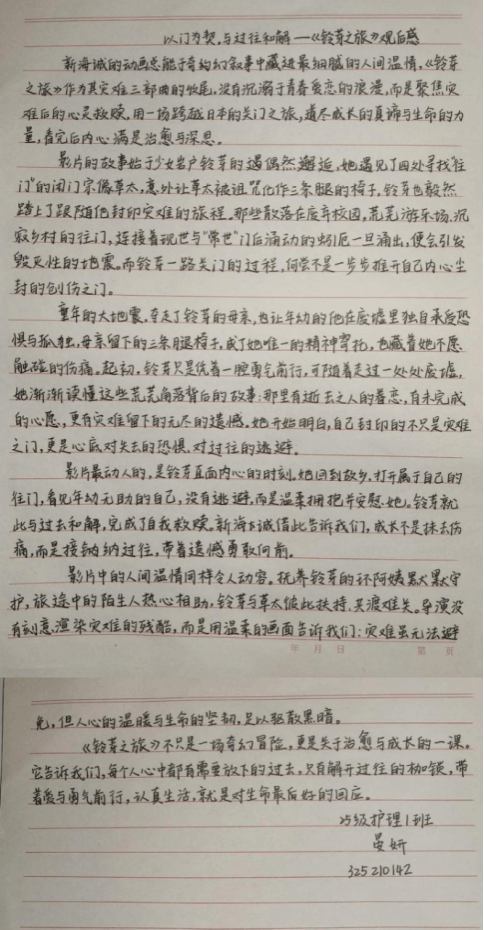 以门为契,与过往和解——《铃芽之旅》观后感
新海诚的动画总能于奇幻叙事中藏进最细腻的人间温情,《铃芽
之旅》作为其灾难三部曲的收尾,没有沉溺于青春爱恋的浪漫,而是聚焦灾
难后的心灵救赎,用一场跨越日本的关门之旅,道尽成长的真谛与生命的力
量,看完后内心满是治愈与深思。
影片的故事始于少女岩户铃芽的遇偶然邂逅,她遇见了四处寻找"往
门"的闭门宗像草太,意外让草太被诅咒化作三条腿的椅子,铃芽也毅然
踏上了跟随他封印灾难的旅程。那些散落在废弃校园,荒芜游乐场,沉
寂乡村的往门,连接着现世与"常世"门后涌动的蚓厄一旦涌出,便会引发
毁灭性的地震。而铃芽一路关门的过程,何尝不是一步步推开自己内心尘
封的创伤之门。
童年的大地震,夺走了铃芽的母亲,也让年幼的他在废墟里独自承受恐
惧与孤独,母亲留下的三条腿椅子,成了她唯一的精神寄托,也藏着她不愿
触碰的伤痛。起初,铃芽只是凭着一腔勇气前行,可随着走过一处处废墟,
她渐渐读懂这些荒芜角落背后的故事:那里有逝去之人的眷恋,有未完成
的心愿,更有灾难留下的无尽的遗憾。她开始明白,自己封印的不只是灾难
之门,更是心底对失去的恐惧、对过往的逃避。
影片最动人的,是铃芽直面内心的时刻。她回到故乡,打开属于自己的
往门,看见年幼无助的自己,没有逃避,而是温柔拥抱并安慰她。铃芽就
此与过去和解,完成了自我救赎。新海诚借此告诉我们,成长不是抹去伤
痛,而是接纳过往,带着遗憾勇敢向前。
影片中的人间温情同样令人动容。抚养铃芽的环阿姨默默守
护,旅途中的陌生人热心相助,铃芽与草太彼此扶持、共渡难关。导演没
有刻意渲染灾难的残酷,而是用温柔的画面告诉我们:灾难虽无法避
年 月 日 第 页
免,但人心的温暖与生命的坚韧,足以驱散黑暗。
《铃芽之旅》不只是一场奇幻冒险,更是关于治愈与成长的一课。
它告诉我们,每个人心中都有需要放下的过去,只有解开过往的枷锁,带
着爱与勇气前行,认真生活,就是对生命最后好的回应。
25级护理1班
晏妍
325210142